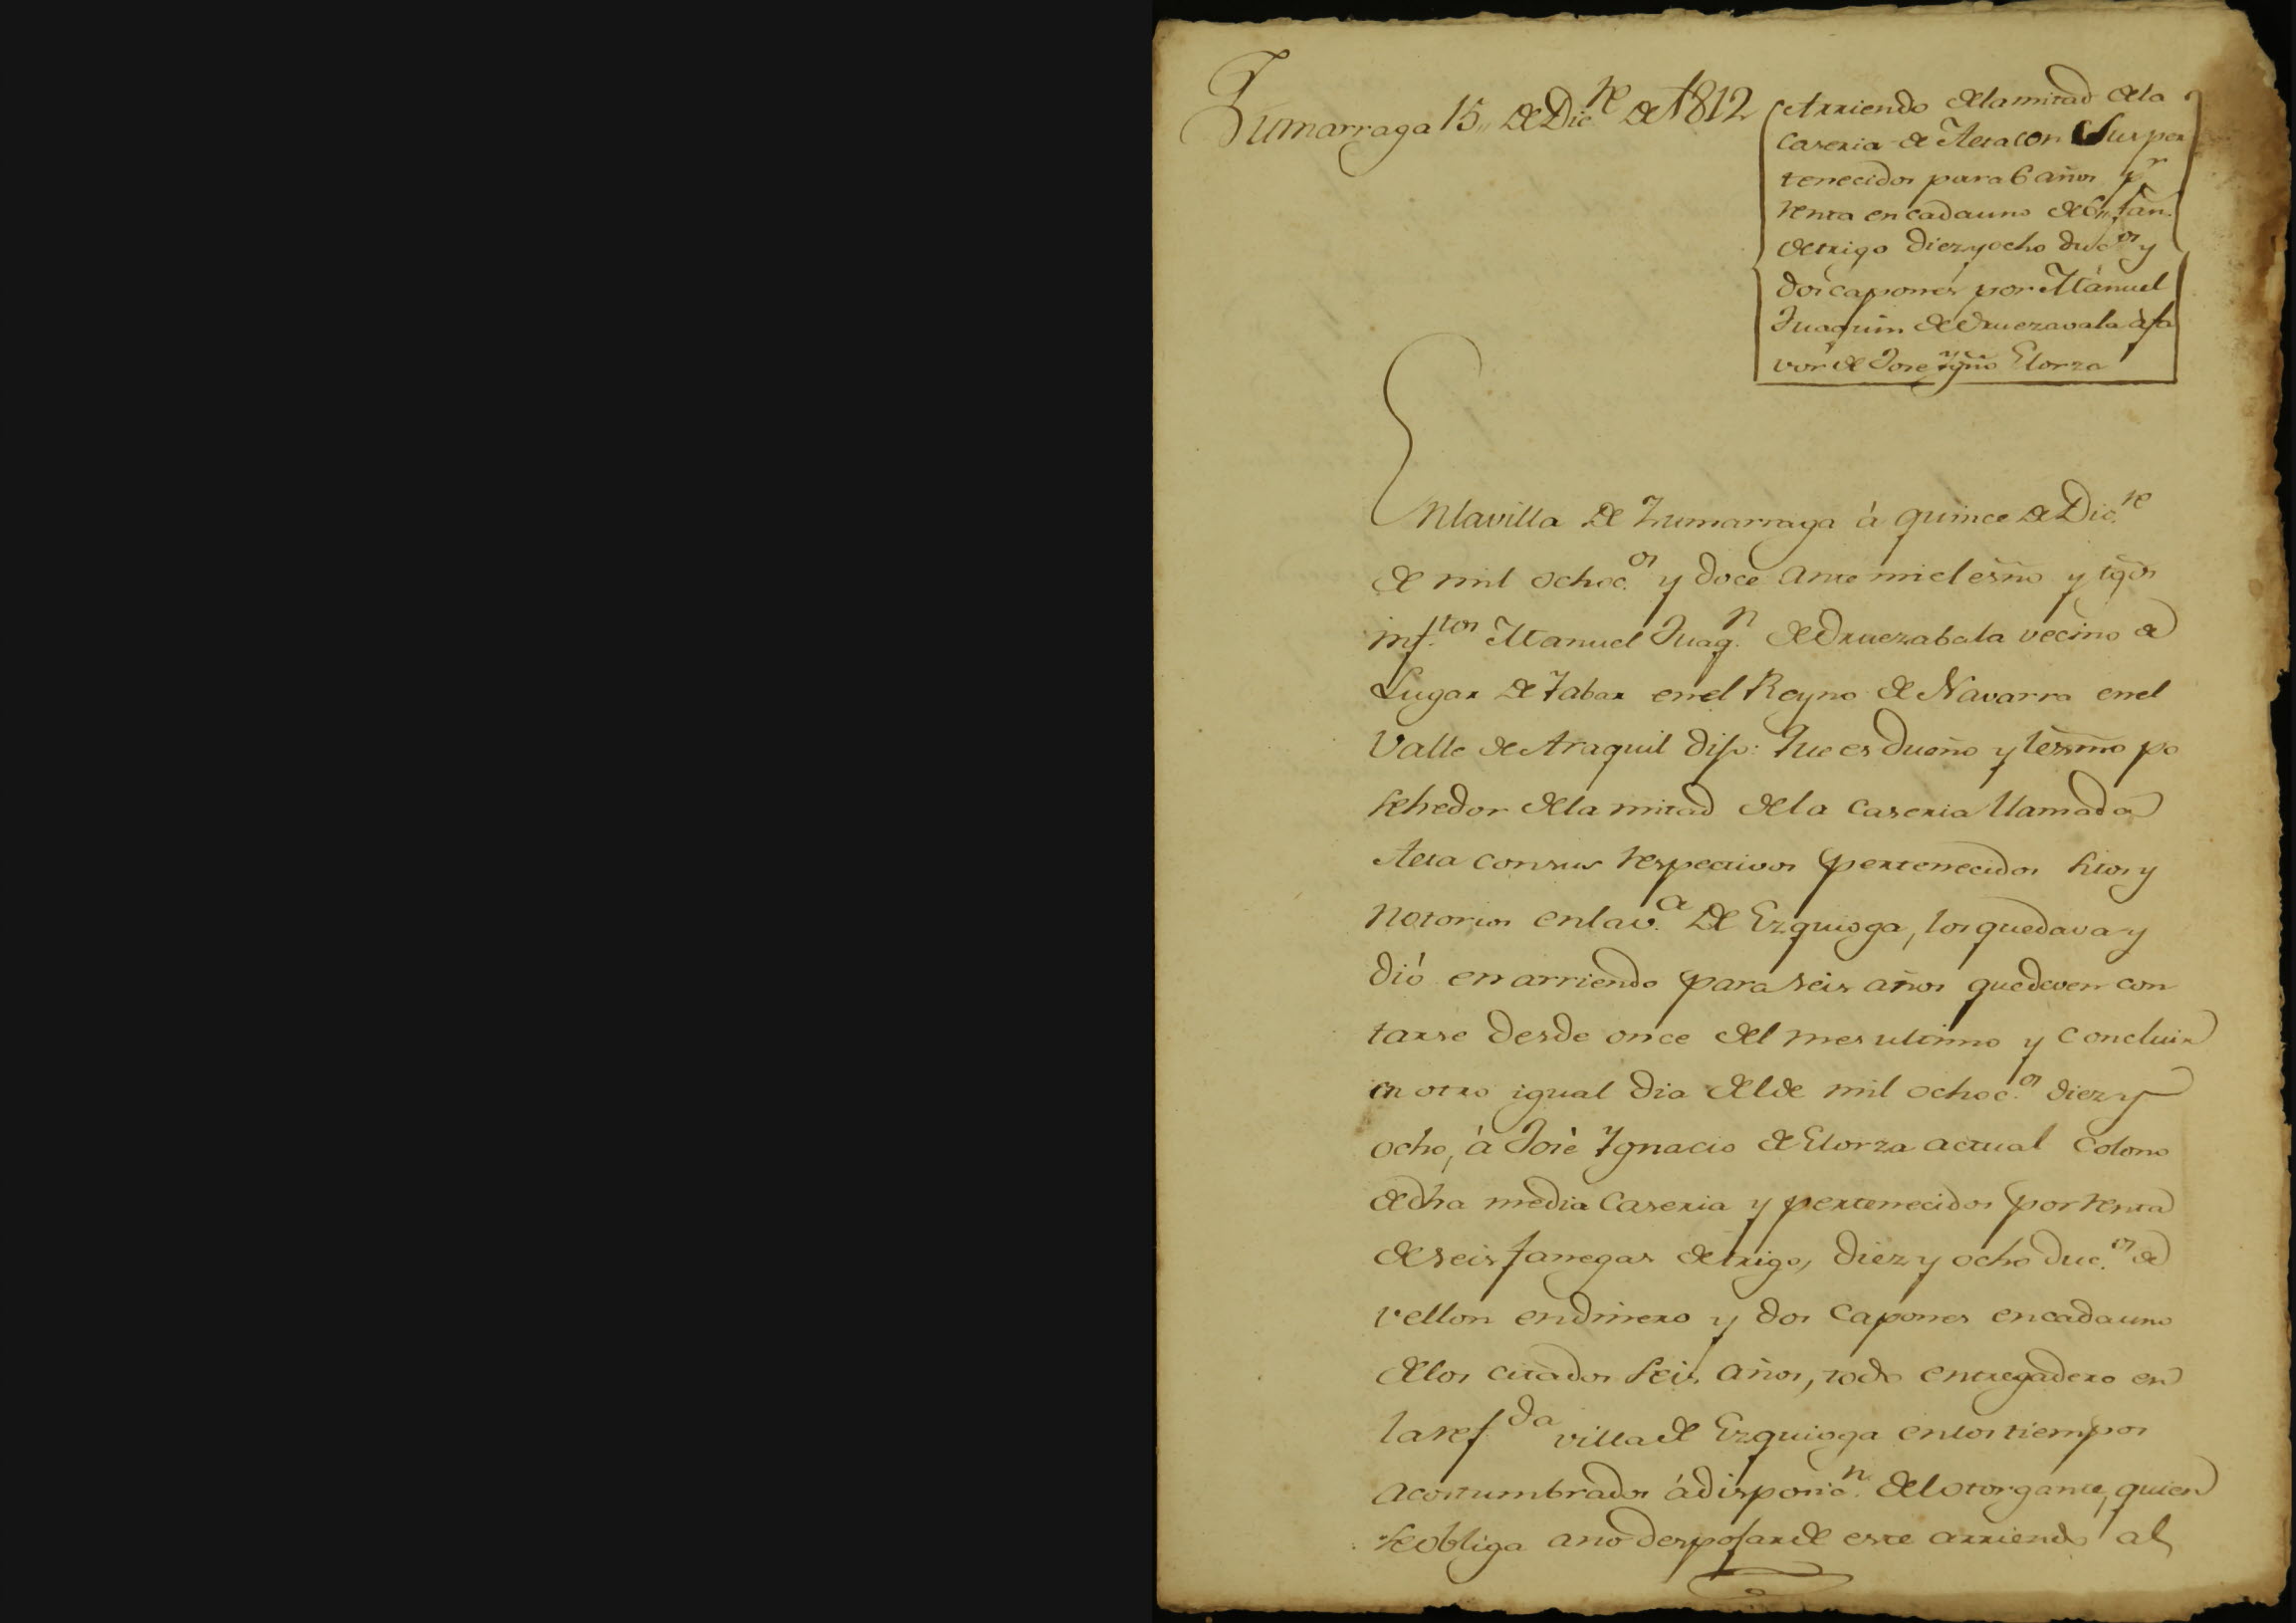 Zumarraga 15,, de Dic.re de 1812
Arriendo de la mitad de la
caseria de Aeta con sus per
tenecidos para 6 años pr
renta en cada uno de 6,, fan.
de trigo diez y ocho duc.os y
dos capones por Manuel
Juaquin de Druezavala à fa
vor de Jose Ygno Elorza
En la villa de Zumarraga à quince de Dic.re
de mil ochoc.os y doce ante mi el esno y tgos
inf.tos Manuel Juaq.n de Druezabala vecino del
Lugar de Yabar en el Reyno de Navarra en el
Valle de Araquil dijo: Que es dueño y lexmo po
sehedor de la mitad de la caseria llamada
Aeta con sus respectivos pertenecidos sitos y
notorios en la v.a de Ezquioga, los que dava y
dió en arriendo para seis años que deven con
tarse desde once del mes ultimo y concluir
en otro igual dia del de mil ochoc.os diez y
ocho, à José Ygnacio de Elorza actual colono
de dha media caseria y pertenecidos por renta
de seis fanegas de trigo, diez y ocho duc.os de
vellon en dinero y dos capones en cada uno
de los citados seis años, todo entregadero en
la ref.da villa de Ezquioga en los tiempos
acostumbrados á disposic.n del otorgante, quien
se obliga a no despojar de este arriendo al